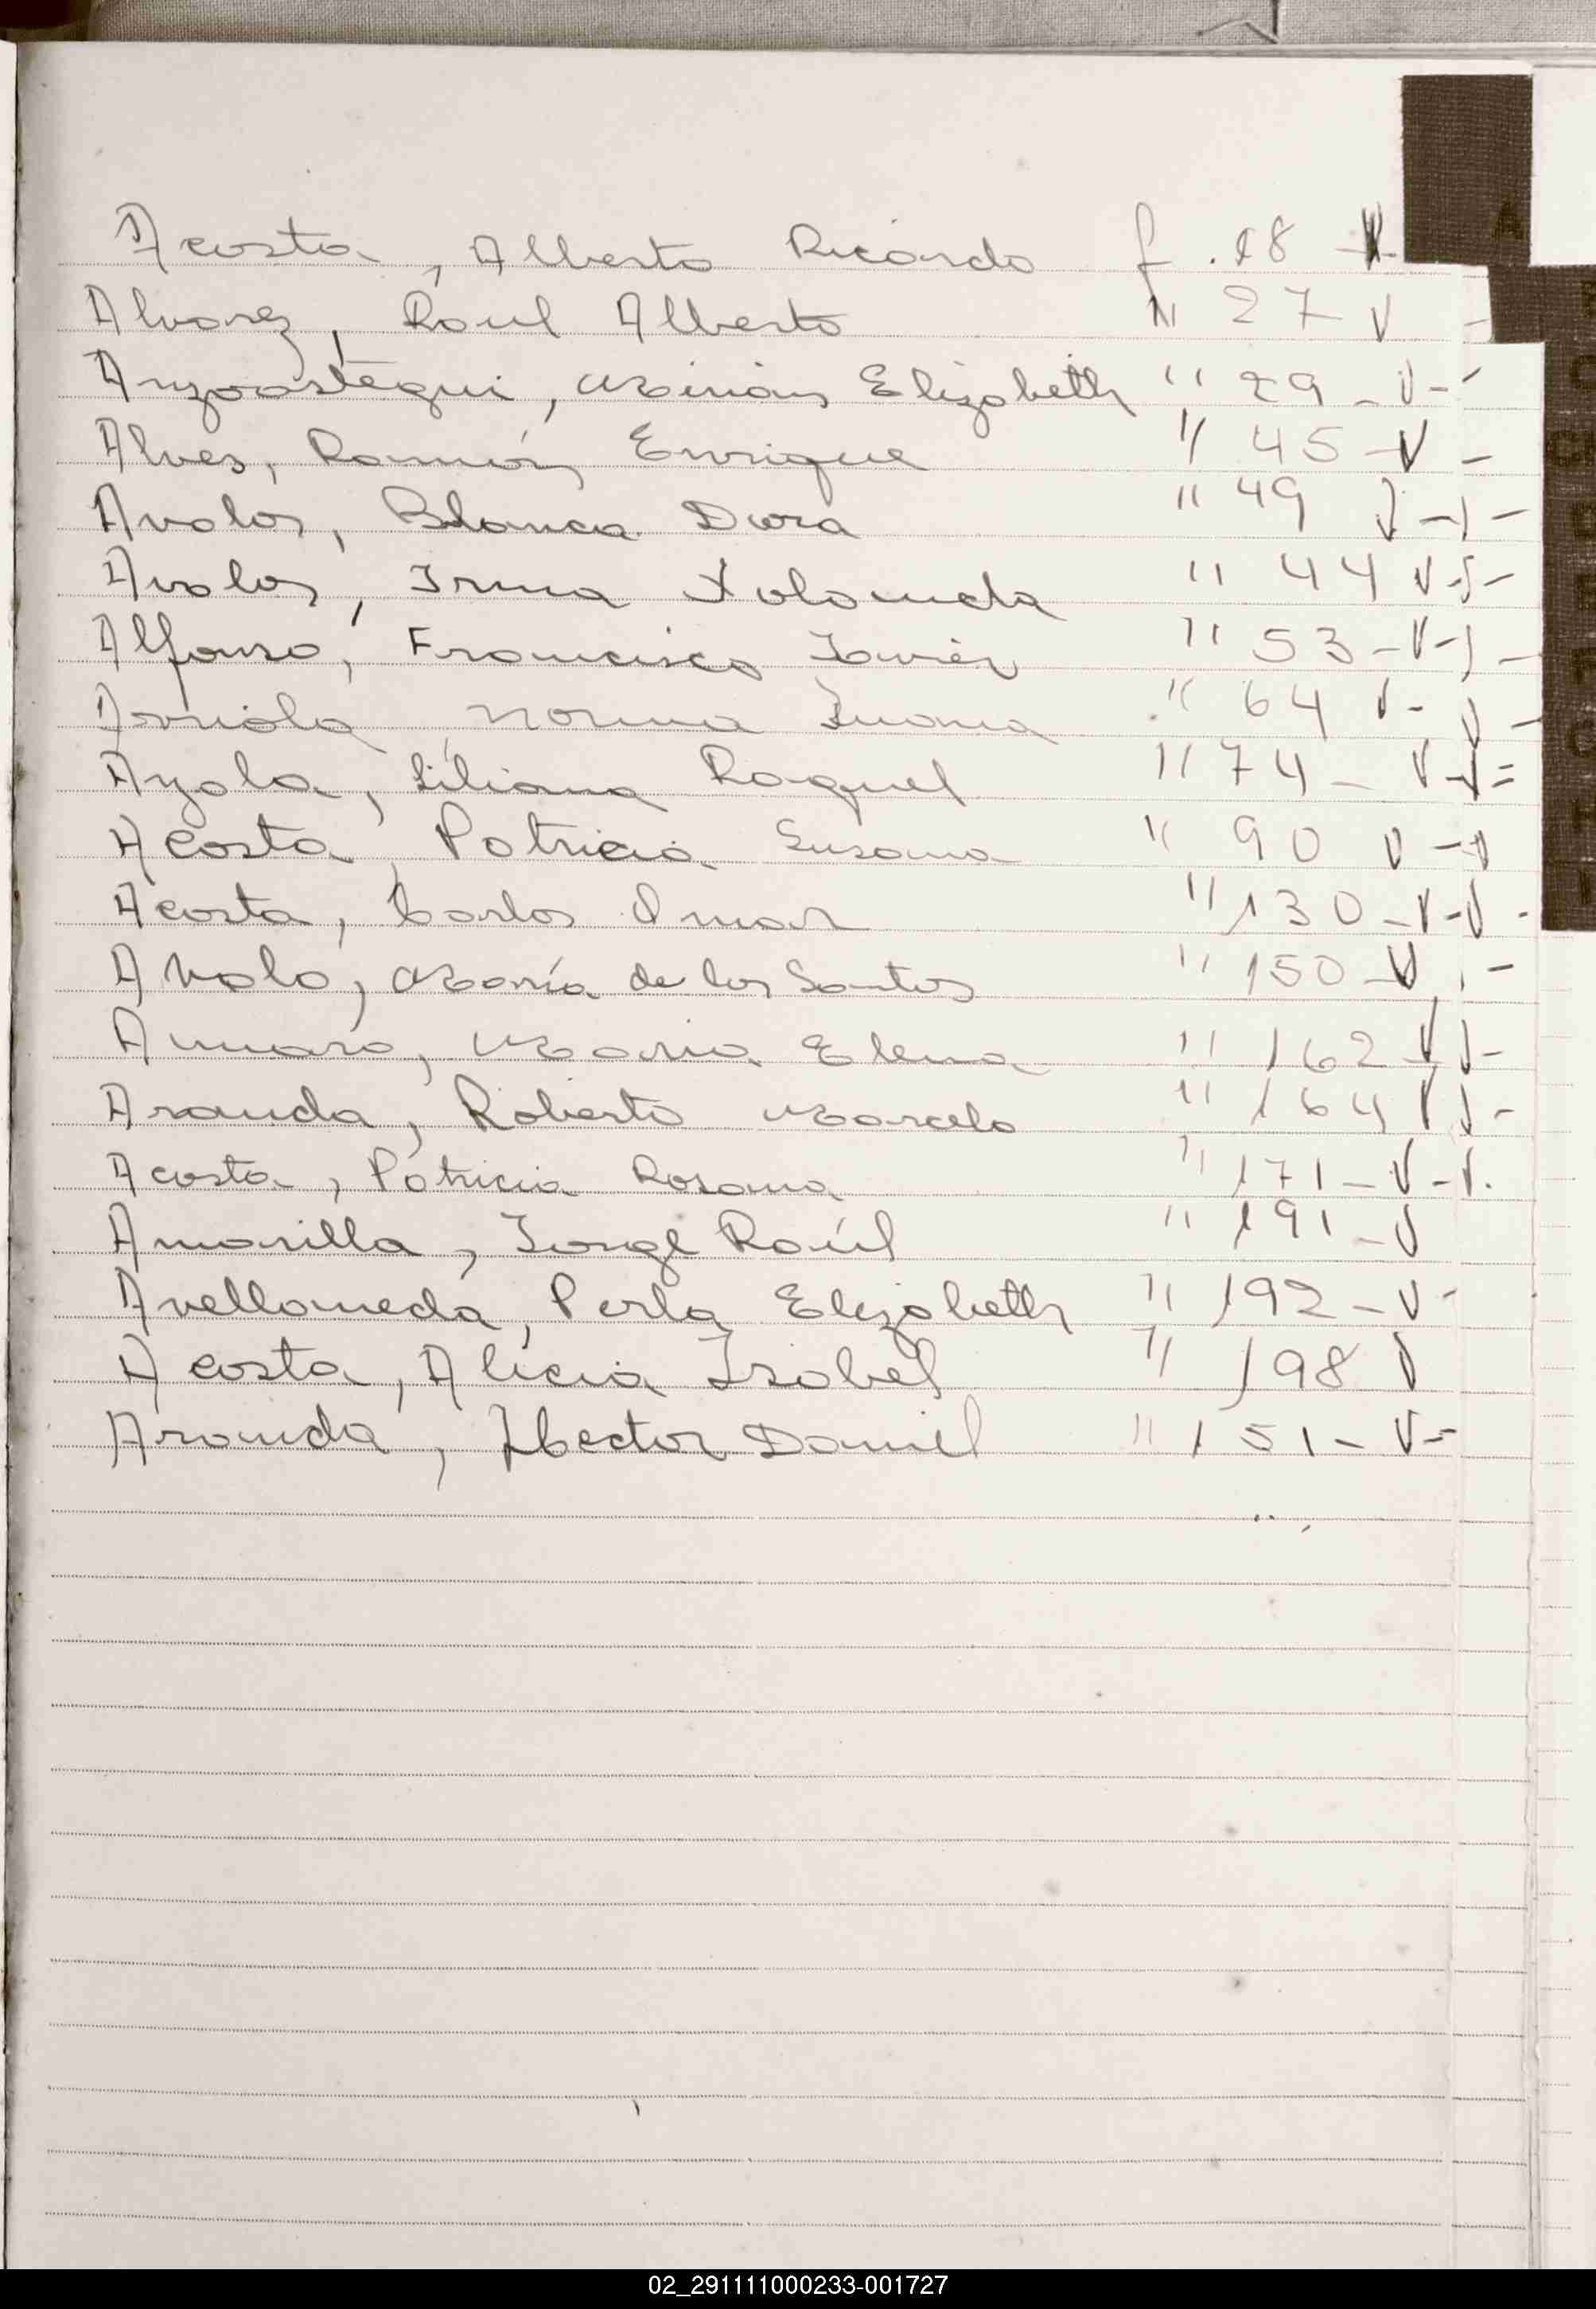 Acosta, Alberto Ricardo f. 18 V
Alvarez, Raul Alberto " 27 V -
Anzoastegui, Mirian Elizabeth " 29 - V -
Alves, Ramón Enrique " 45 - V -
Avalos, Blanca Dora " 49 V - -
Avalos, Irma Yolanda " 44 V - -
Alfonso, Francisco Javier " 53 - V - -
Arriola Norma Juana " 64 V - V -
Ayala, Liliana Raquel " 74 - V - V =
Acosta, Patricia Susana " 90 V - V
Acosta, Carlos Omar " 130 - V - V -
Avalo, María de los Santos " 150 - V -
Amaro, Maria Elena " 162 V V -
Aranda, Roberto Marcelo " 164 V V -
Acosta, Patricia Rosana " 171 - V - V.
Amarilla, Jorge Raúl " 191 - V
Avellaneda, Perla Elizabeth " 192 - V -
Acosta, Alicia Isabel " 198 V
Aranda, Hector Daniel " 151 - V =
02_291111000233-001727